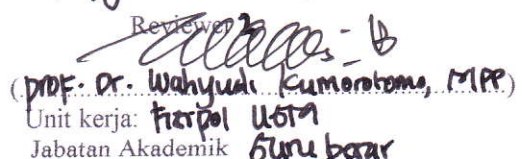 Reviewer
(Prof. Dr. Wahyudi Kumorotomo, MPP)
Unit kerja: Fisipol UGM
Jabatan Akademik Guru besar